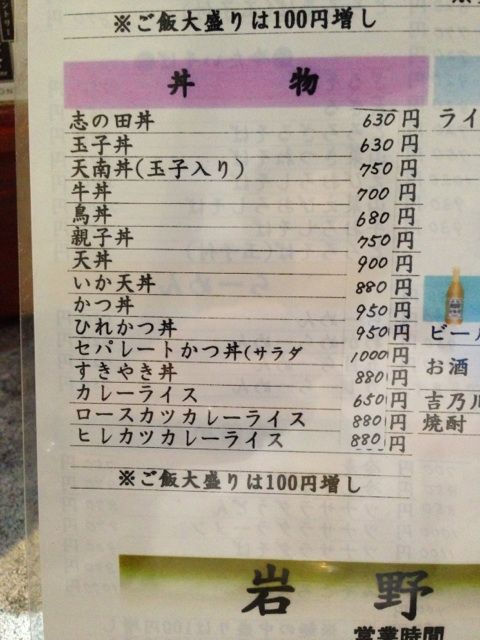 ※ご飯大盛りは100円増し
丼 物
志の田丼 630円
玉子丼 630円
天南丼(玉子入り) 750円
牛丼 700円
鳥丼 680円
親子丼 750円
天丼 900円
いか天丼 880円
かつ丼 950円
ひれかつ丼 950円
セパレートかつ丼(サラダ 1000円
すきやき丼 880円
カレーライス 650円
ロースカツカレーライス 880円
ヒレカツカレーライス 880円
※ご飯大盛りは100円増し
ライ
ビール
お酒
吉乃川
焼酎
岩 野
営業時間